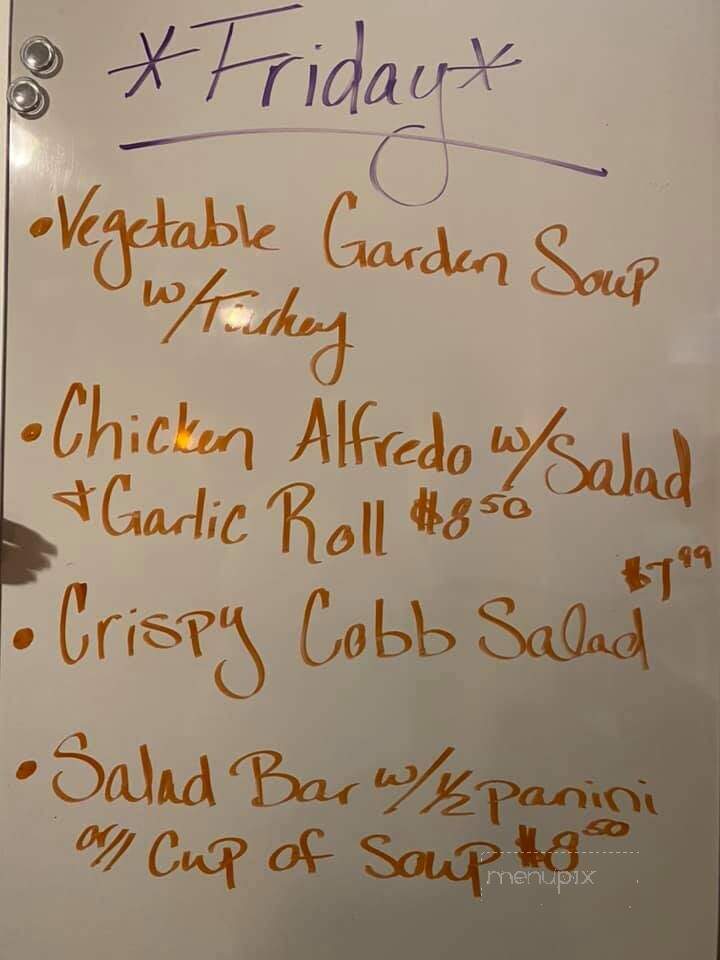 *Friday*
•Vegetable Garden Soup
w/Turkey
•Chicken Alfredo w/Salad
+Garlic Roll $8 50
$7 99
•Crispy Cobb Salad
•Salad Bar w/½ panini
or// Cup of Soup $8 50
menupix